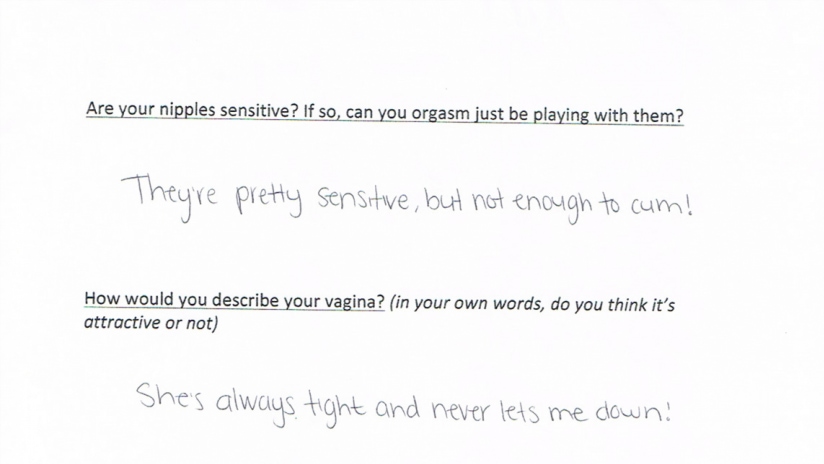 Are your nipples sensitive? If so, can you orgasm just be playing with them?
They're pretty sensitive, but not enough to cum!
How would you describe your vagina? (in your own words, do you think it's
attractive or not)
She's always tight and never lets me down!